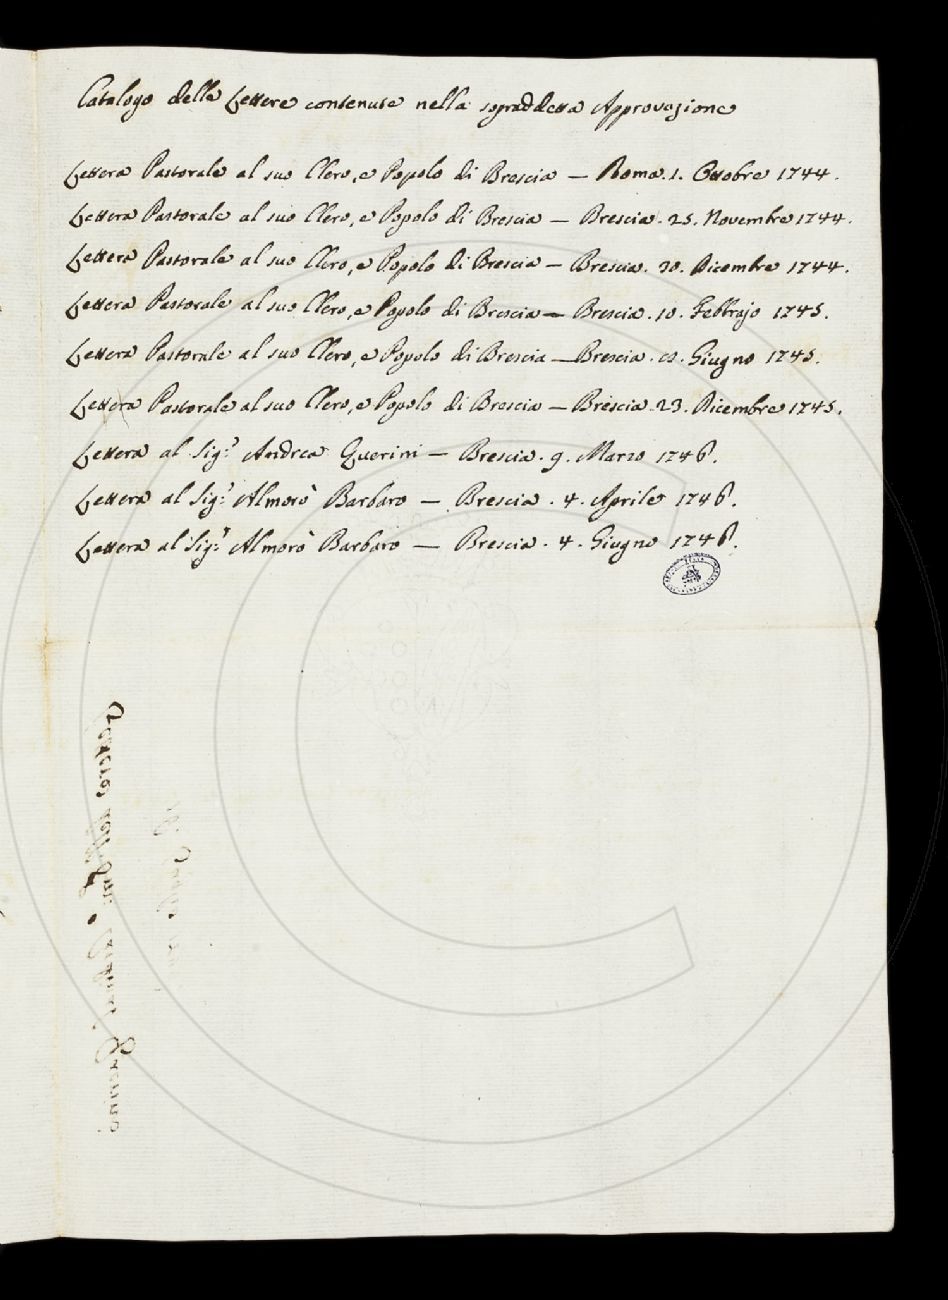 Catalogo delle Lettere contenute nella sopraddetta Approvazione
Lettera Pastorale al suo Clero, e Popolo di Brescia — Roma. 1. Ottobre 1744.
Lettera Pastorale al suo Clero, e Popolo di Brescia — Brescia. 25. Novembre 1744.
Lettera Pastorale al suo Clero, e Popolo di Brescia — Brescia. 20. Dicembre 1744.
Lettera Pastorale al suo Clero, e Popolo di Brescia — Brescia. 10. Febbrajo 1745.
Lettera Pastorale al suo Clero, e Popolo di Brescia — Brescia. Giugno 1745.
Lettera Pastorale al suo Clero, e Popolo di Brescia — Brescia. 23. Dicembre 1745.
Lettera al Sig.r Andrea Querini — Brescia. 9. Marzo 1746.
Lettera al Sig.r Almorò Barbaro — Brescia. 4. Aprile 1746.
Lettera al Sig.r Almorò Barbaro — Brescia. 4. Giugno 1746.